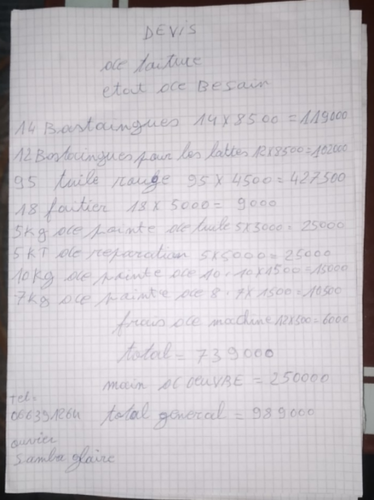 DEVIS
de toiture
etat de BESain
14 Bastaingues 14 x 8500 = 119000
12 Bastaingues pour les lattes 12x8500=102000
95 tuile rouge 95 x 4500 = 427500
18 faitier 18 x 5000 = 9000
5kg de pointe de tuile 5x5000 = 25000
5 KT de reparation 5x5000 = 25000
10kg de pointe de 10 - 10x1500 = 15000
7kg de pointe de 8 - 7 x 1500 = 10500
frais de machine 12x500 = 6000
total = 739000
main de OEUVRE = 250000
Tel.
total general = 989000
ouvier
Samba glaire